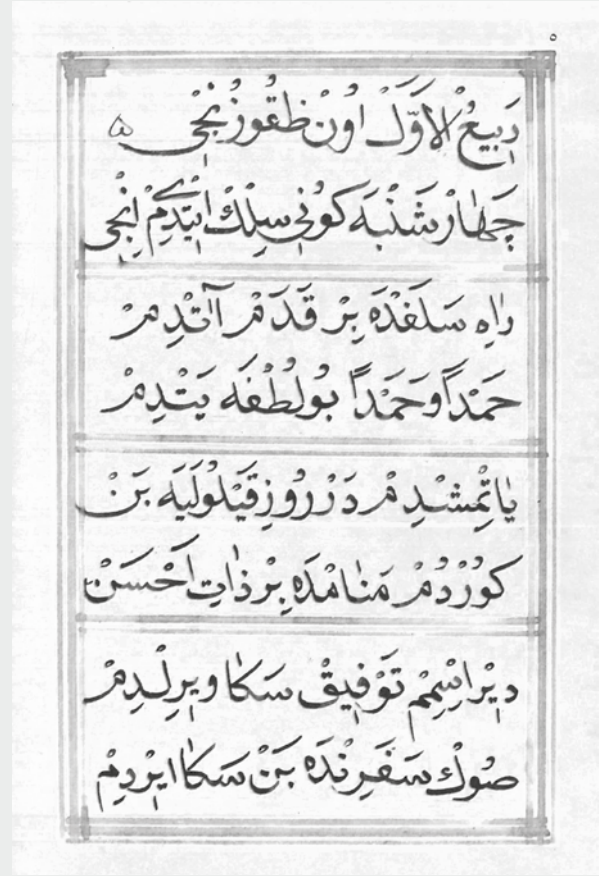 ٥
رَبِيعُ الْاَوَّلْ اوُنْ طُقُوزُنْجِى
چَهَارْشَنْبَه كُونِى سِلْكْ اِيْتَدِمْ اِنْجِى
رَاهِ سَلَفْدَه بِرْ قَدَمْ آتْدِمْ
حَمْدًا وَحَمْدًا بُولُطْفَه يَتْدِمْ
يَاتْمِشْدِمْ دَرْ رُوزِ قَيْلُولَيَه بَنْ
كُورْدُمْ مَنَامْدَه بِرْ ذَاتِ اَحْسَنْ
دِيْرْ اِسْمِمْ تَوْفِيقْ سَكَا وِيرِلْدِمْ
صُوكْ سَفَرِنْدَه بَنْ سَكَا ايِرْدِمْ